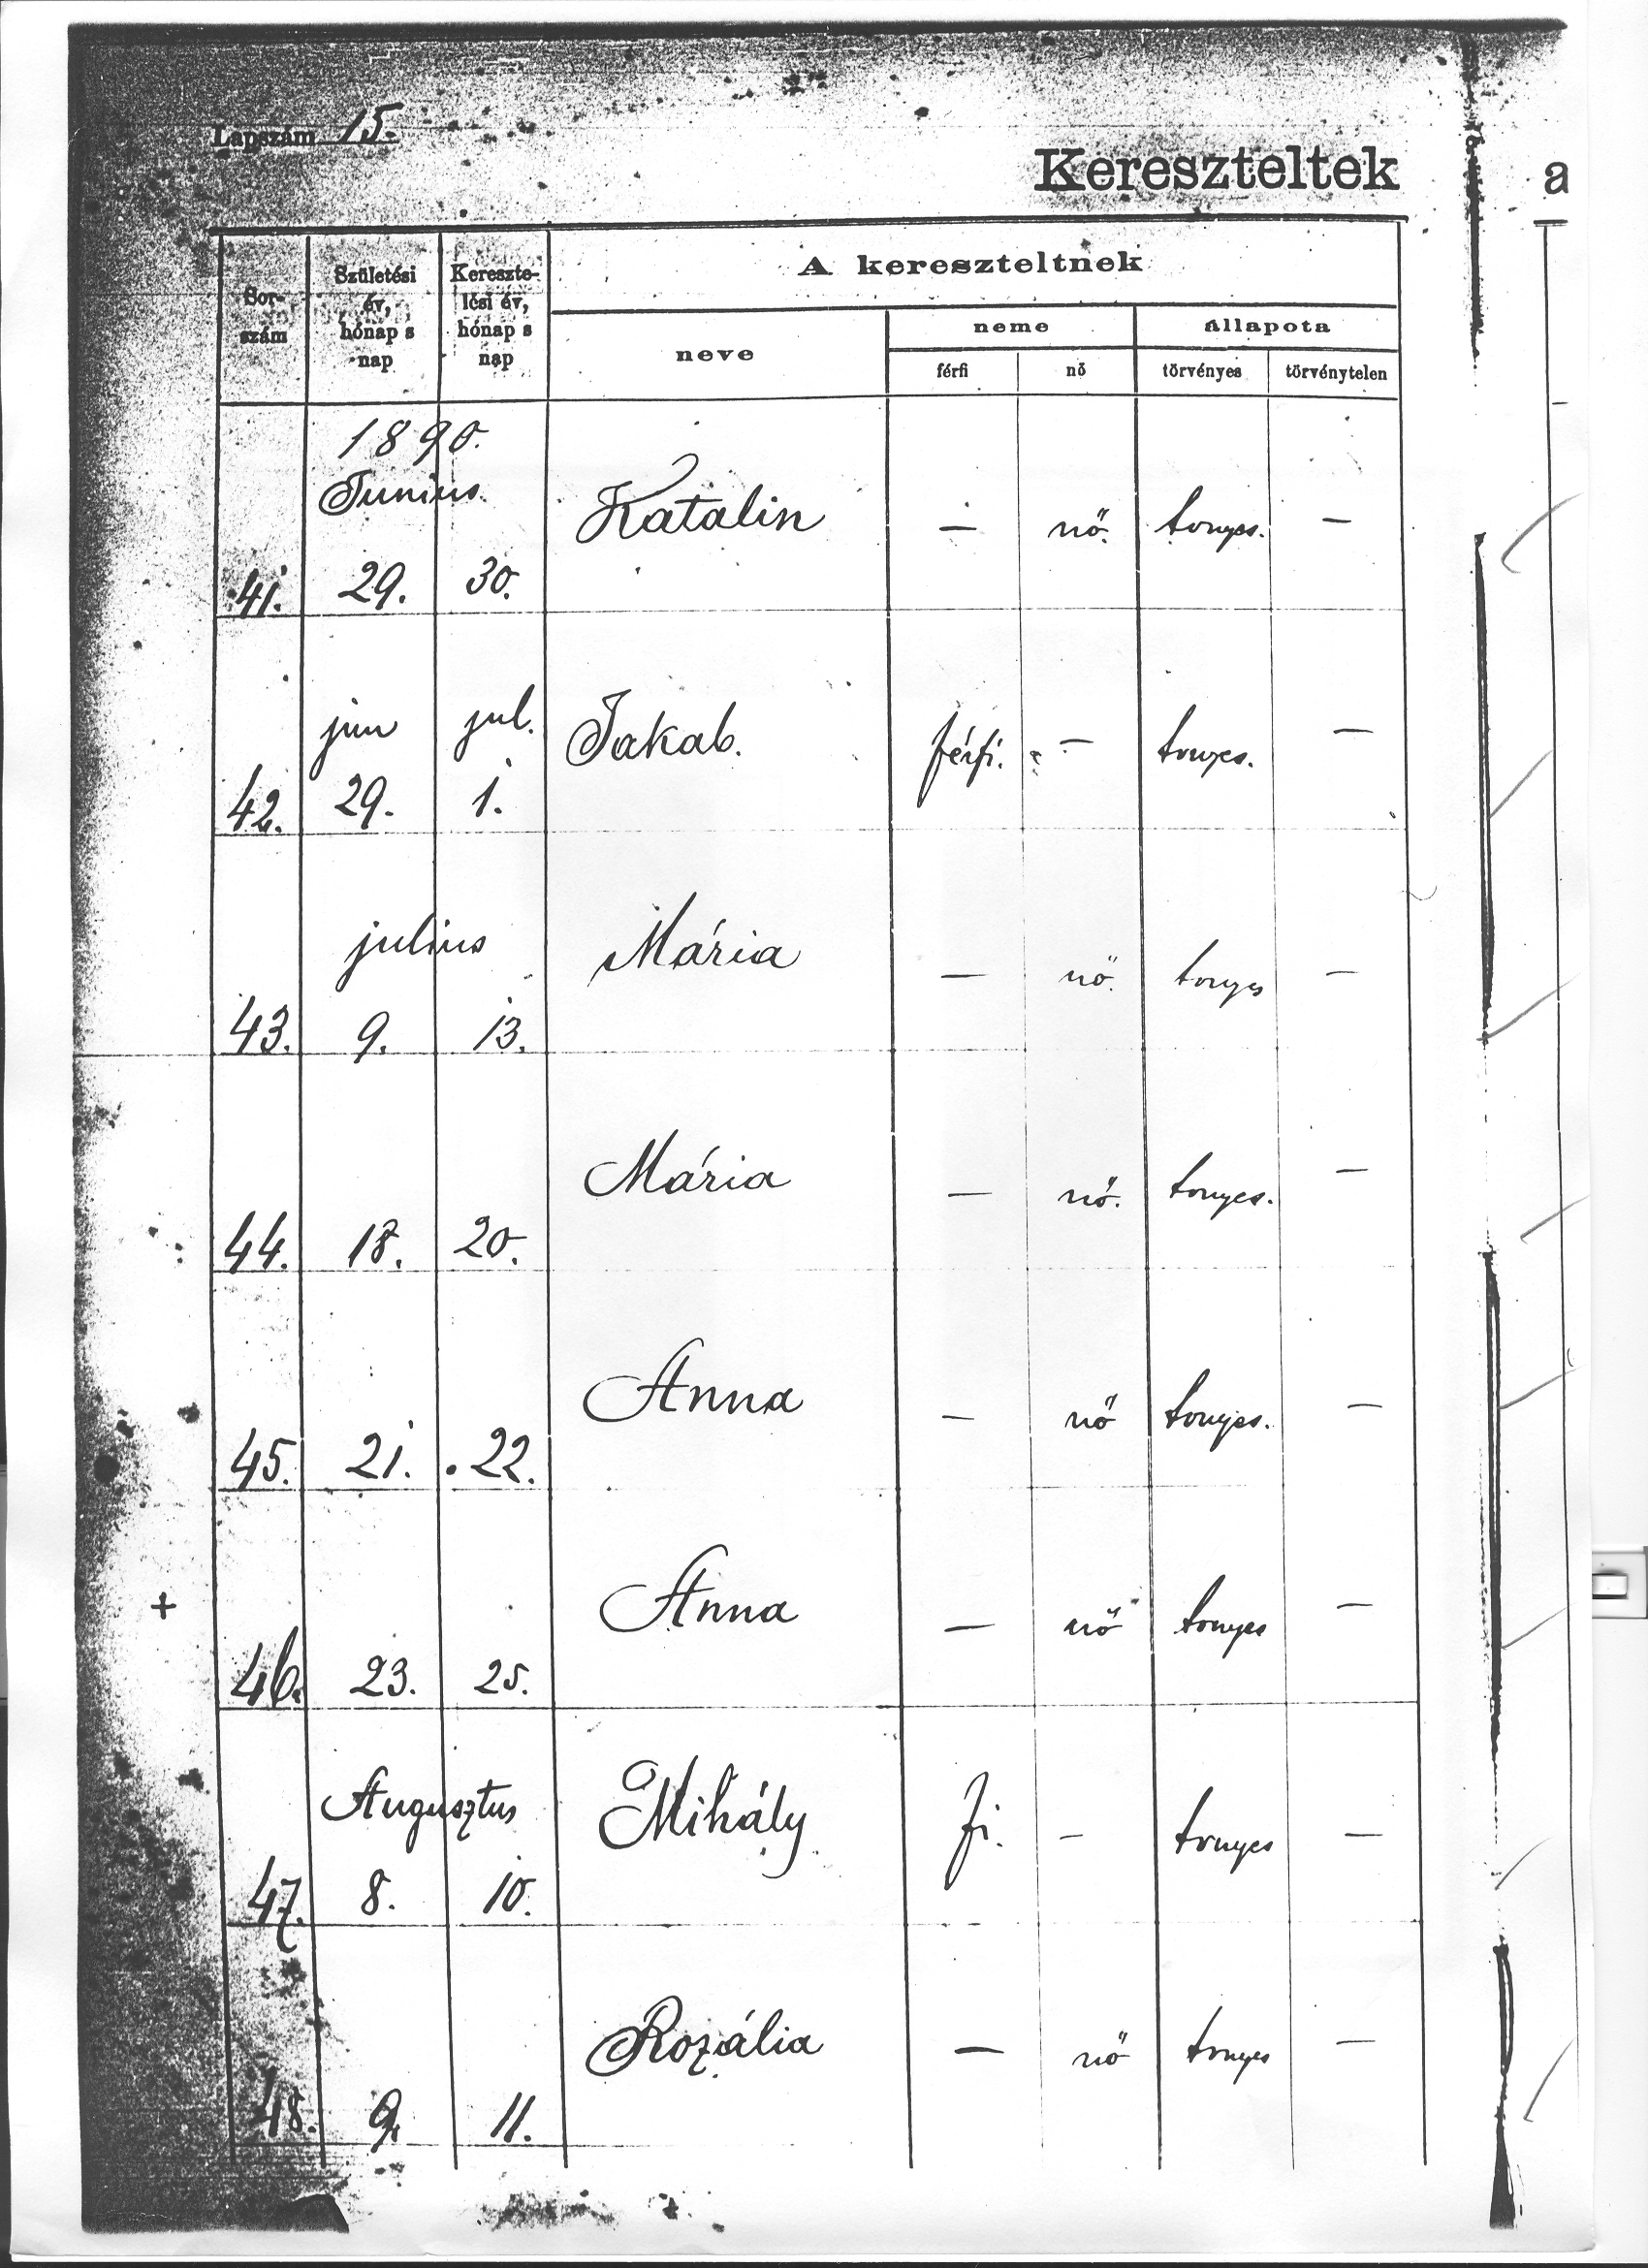 Lapszám 15.
Kereszteltek
a
Sor-
szám
Születési
év,
hónap s
nap
Keresztelési
Keresztelési év,
hónap s
nap
A kereszteltnek
neve
neme
állapota
férfi
nő
törvényes
törvénytelen
1890.
Junius.
41. 29. 30. Katalin — nő. tvnyes. —
jun jul.
42. 29. 1. Jakab. férfi. — tvnyes. —
julius
43. 9. 13. Mária — nő. tvnyes —
44. 18. 20. Mária — nő. tvnyes. —
45. 21. 22. Anna — nő tvnyes. —
+
46. 23. 25. Anna — nő tvnyes —
Augusztus
47. 8. 10. Mihály fi. — tvnyes —
48. 9. 11. Rozália — nő tvnyes —